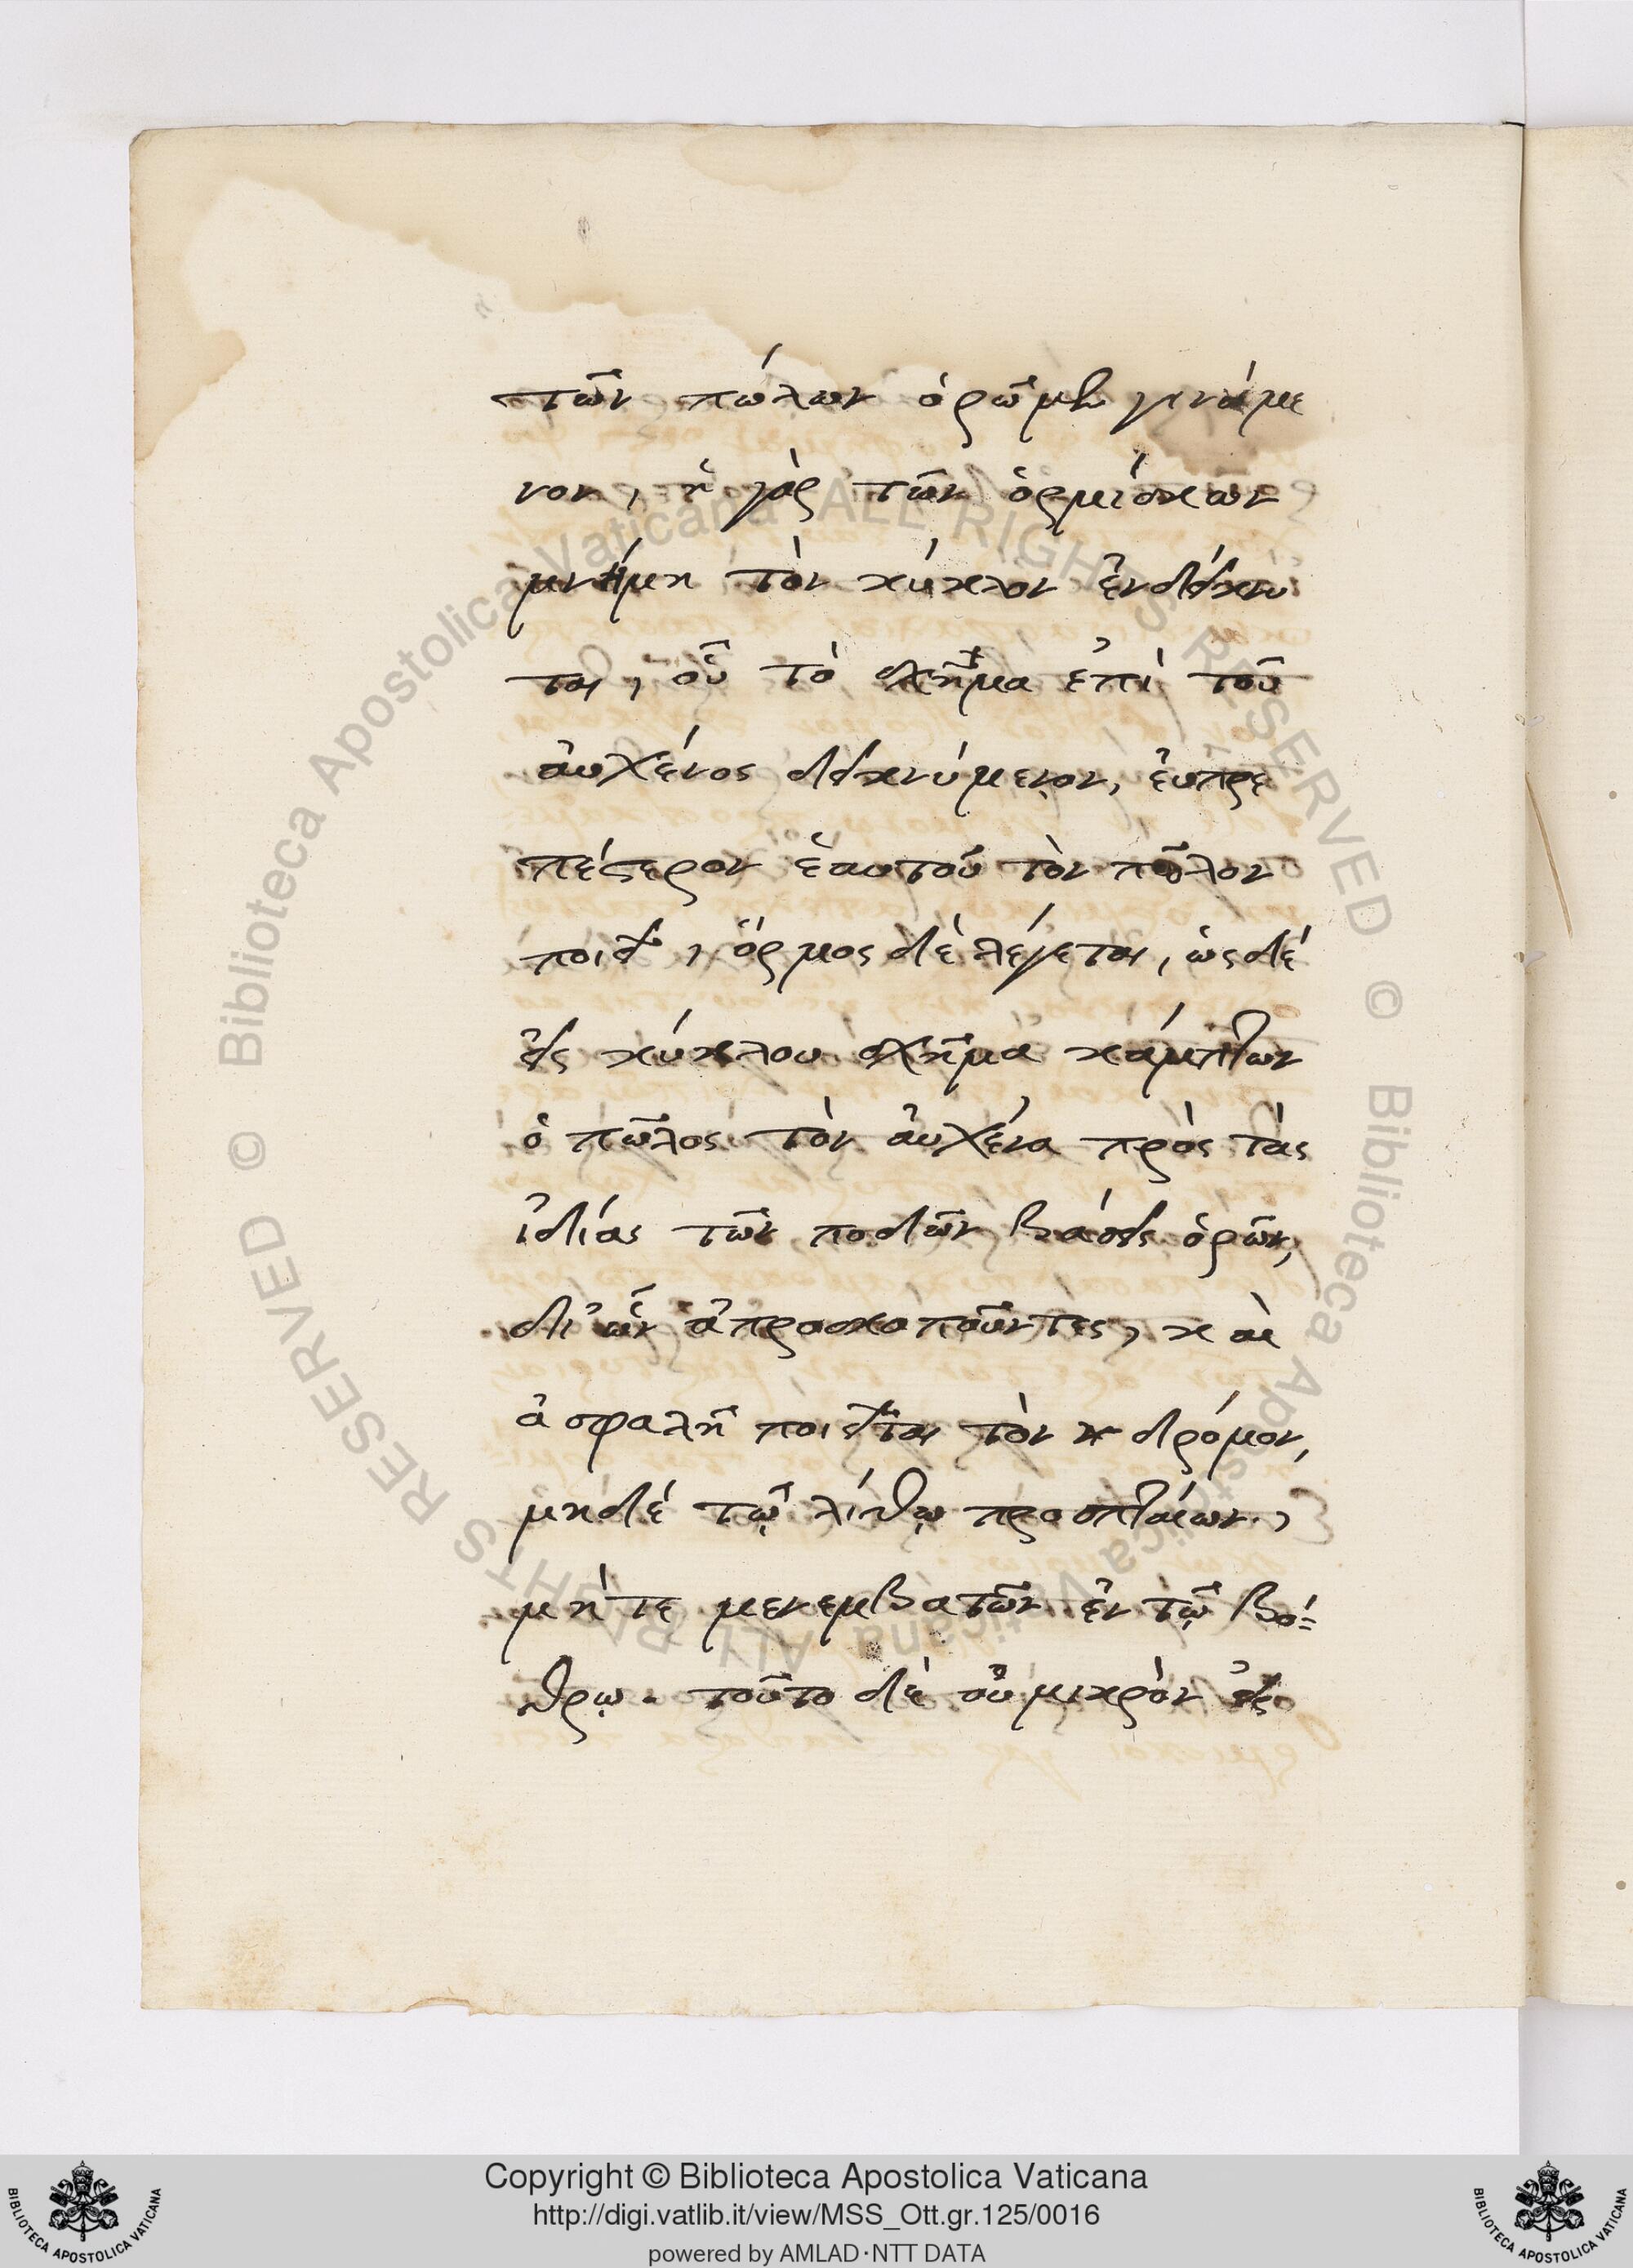 τῶν πώλων ὁρῶμεν γινόμε
νον, ἡ γὰρ τῶν ὁρμίσκων
μνήμη τὸν κύκλον ἐνδείκνυ
ται, οὗ τὸ σχῆμα ἐπὶ τοῦ
αὐχένος δεικνύμενον, ἐυπρε
πέστερον ἑαυτοῦ τὸν πῶλον
ποιεῖ, ὅρμος δὲ λέγεται, ὡς δέ
εἰς κύκλου σχῆμα κάμπτων
ὁ πῶλος τὸν ἀυχένα πρὸς τὰς
ἰδίας τῶν ποδῶν βάσεις ὁρῶν,
δι ὧν ἀπροσκοποῦντες, καὶ
ἀσφαλῆ ποιεῖται τὸν δρόμον,
μηδέ τῷ λίθῳ προσπταίων,
μήτε μενεμβατῶν ἐν τῷ βό-
θρῳ. τοῦτο δὲ οὐ μικρὸν εἰς
Copyright © Biblioteca Apostolica Vaticana
http://digi.vatlib.it/view/MSS_Ott.gr.125/0016
powered by AMLAD·NTT DATA
BIBLIOTECA APOSTOLICA VATICANA
BIBLIOTECA APOSTOLICA VATICANA
© Biblioteca Apostolica Vaticana ALL RIGHTS RESERVED
© Biblioteca Apostolica Vaticana ALL RIGHTS RESERVED